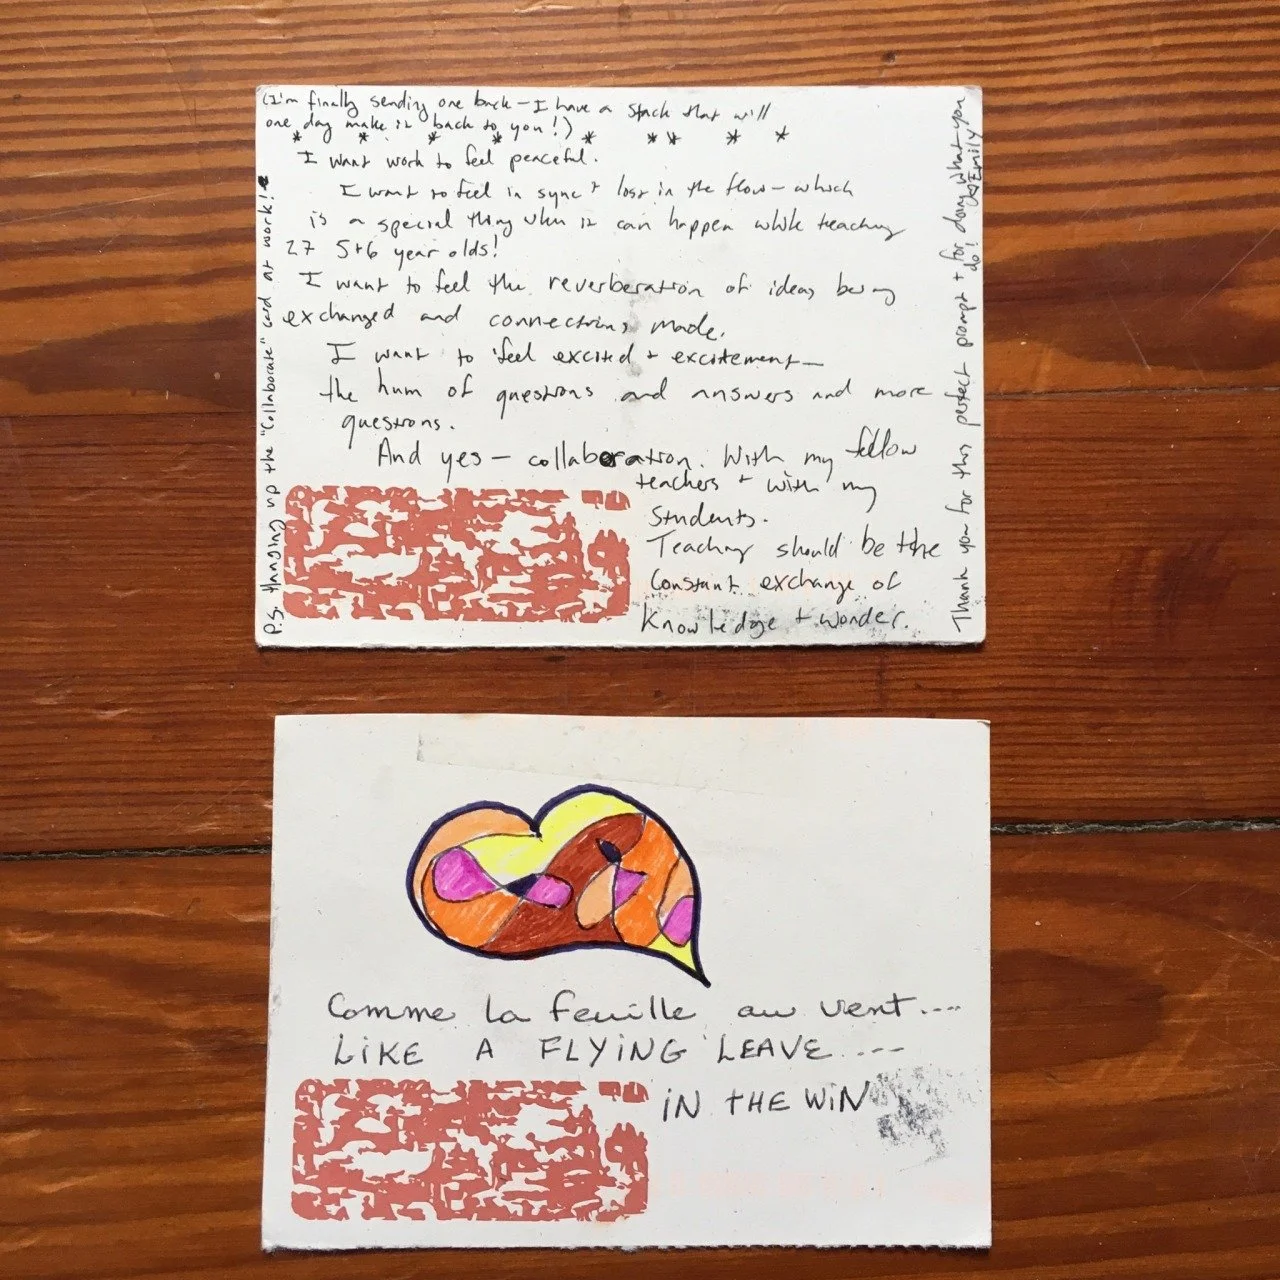 (I'm finally sending one back – I have a stack that will
one day make it back to you!)
* * * * * * * * *
I want work to feel peaceful.
I want to feel in sync + lost in the flow – which
is a special thing when it can happen while teaching
27 5+6 year olds!
I want to feel the reverberation of ideas being
exchanged and connections made.
I want to feel excited + excitement –
the hum of questions and answers and more
questions.
And yes – collaboration. With my fellow
teachers + with my
students.
Teaching should be the
constant exchange of
knowledge + wonder.
Thank you for this perfect prompt + for doing what you
do!
Emily
P.S. Hanging up the "Collaborate" card at work!
Comme la feuille au vent....
LIKE A FLYING LEAVE....
IN THE WIN